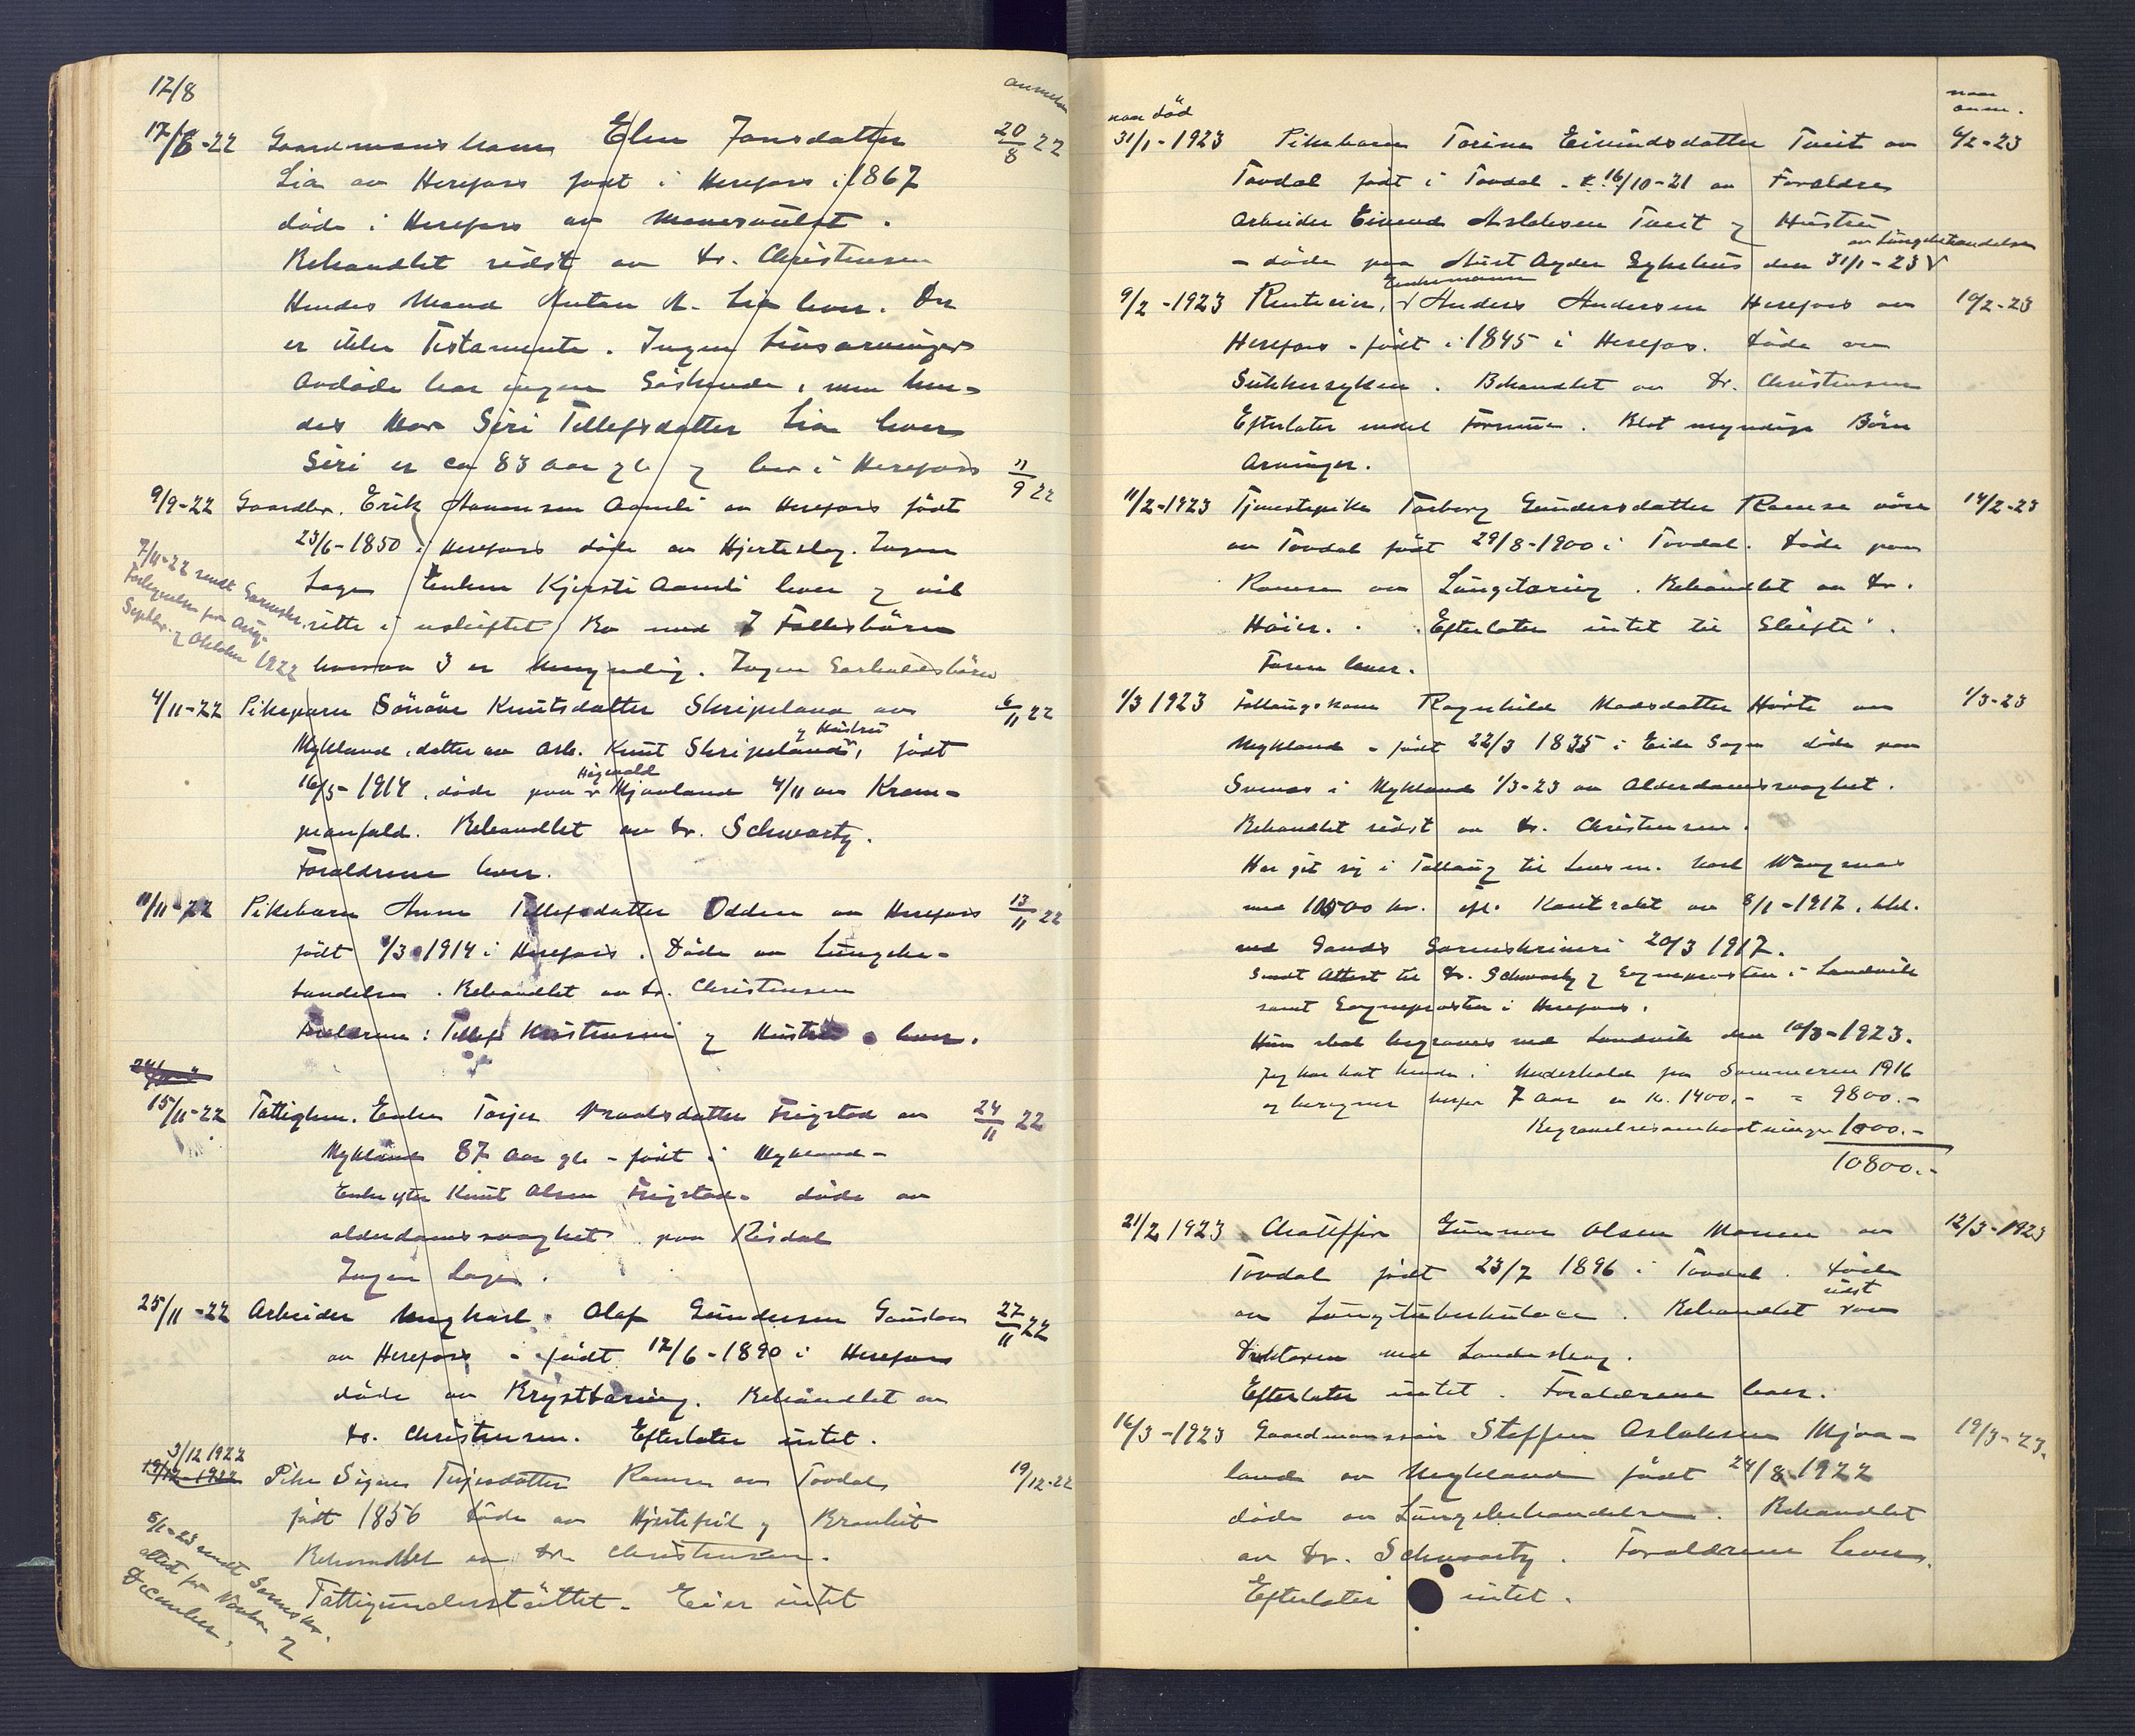 12/8
anmeldt
17/8-22 Gaardmanskone Elen Jonsdatter 20/8 22
Lia av Herefoss født i Herefoss i 1867
døde i Herefoss av Mavesvulst.
Behandlet sidst av Dr. Christensen
Hendes Mand Anton A. Lia lever. Der
er ikke Testamente. Ingen Livsarvinger
Avdøde har ingen Søskende, men hen-
des Mor Siri Tellefsdatter Lia lever
Siri er ca 83 aar gl. og bor i Herefoss 11/9 22
9/9-22 Gaardbr. Erik Aanonsen Aamli av Herefoss født
23/6-1850 i Herefoss døde av Hjerteslag. Ingen
Læge Enken Kjersti Aamli lever og vil
sitte i uskiftet Bo med 7 Fellesbörn
hvorav 3 er Umyndig. Ingen Særkuldsbörn
7/11-22 sendt Sorenskr.
Fortegnelse for Aug.
Septbr. og Oktober 1922
4/11-22 Pikebarn Sönöve Knutsdatter Skripeland av 6/11 22
Mykland, datter av Arb. Knut Skripeland og Hustru, født
16/5-1914, døde paa Høgevold Mjaaland 4/11 av Kram-
peanfald. Behandlet av Dr. Schwartz.
Forældrene lever.
11/11-22 Pikebarn Anne Tellefsdatter Odden av Herefoss 13/11 22
født /3 1914 i Herefoss. Døde av Lungebe-
tændelse. Behandlet av Dr. Christensen
Forældrene: Tellef Kristensen og Hustru lever.
15/11-22 Fattiglem. Enke Torjer Vraalsdatter Frigstad av 24/11 22
Mykland 87 Aar gl. - født i Mykland -
Enke efter Knut Olsen Frigstad - døde av
alderdomssvaghet paa Risdal
Ingen Læge.
25/11-22 Arbeider Ungkarl Olaf Gundersen Gauslaa 27/11 22
av Herefoss - født 12/6-1890 i Herefoss
døde av Brysttæring. Behandlet av
Dr. Christensen. Efterlater intet.
3/12 1922
19/12-1922 Pike Signe Terjesdatter Ramse av Tovdal 19/12-22
født 1856 døde av Hjertefeil og Bronkit
Behandlet av Dr. Christensen.
Fattigunderstöttet. Eier intet
5/1-23 sendt Sorenskr.
attest for Novbr. og
December.
naar död
naar anm.
31/1-1923 Pikebarn Torine Eivindsdatter Tveit av 6/2-23
Tovdal født i Tovdal 16/10-21 av Forældre
Arbeider Eivind Aslaksen Tveit og Hustru
- døde paa Aust Agder Sykehus den 31/1-23 av Lungebetændelse
9/2-1923 Rentieier, Enkemann Anders Andersen Herefoss av 10/2-23
Herefoss - født i 1845 i Herefoss. Døde av
Sukkersyken. Behandlet av Dr. Christensen
Efterlater endel Formue. Blot myndige Börn
Arvinger.
11/2-1923 Tjenestepike Torborg Gundersdatter Ramse övre 14/2-23
av Tovdal født 29/8-1900 i Tovdal. Døde paa
Ramse av Lungetæring. Behandlet av Dr.
Höier. Efterlater intet til Skifte.
Faren lever.
1/3 1923 Follaugskone Ragnhild Madsdatter Hörte av 1/3-23
Mykland - født 22/3 1835 i Eide Sogn døde paa
Svenes i Mykland 1/3-23 av Alderdomssvaghet.
Behandlet sidst av Dr. Christensen.
Har git sig i Follaug til Lensm. Karl Wangsnes
med 10500 kr. efl. Kontrakt av 8/1-1917, thl.
ved Sands Sorenskriveri 20/3 1917.
Sendt Attest til Dr. Schwartz og Sogneprosten i Landvik
samt Sogneprosten i Herefoss.
Hun skal begraves ved Landvik den 10/3-1923.
Jeg har hat hende i Underhold fra Sommeren 1916
og beregner herfor 7 Aar a k. 1400.- = 9800.-
Begravelsesomkostninger 1000.-
10800.-
21/2 1923 Chauffør Gunnar Olsen Moen av 12/3-1923
Tovdal født 23/7 1896 i Tovdal. Døde
av Lungetuberkulose. Behandlet sidst av
Doktoren ved Landeskog.
Efterlater intet. Forældrene lever.
16/3-1923 Gaardmannssön Steffen Aslaksen Mjaa- 19/3-23.
land av Mykland født 24/8 1922
døde av Lungebetændelse. Behandlet
av Dr. Schwartz. Forældrene lever.
Efterlater intet.